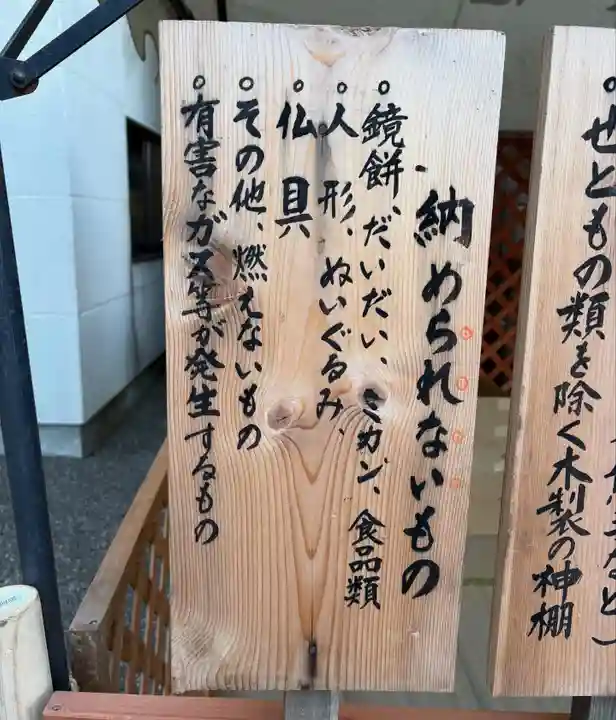 せともの類を除く木製の神棚
納められないもの
鏡餅、だいだい、ミカン、食品類
人形、ぬいぐるみ、
仏具
その他、燃えないもの
有害なガス等が発生するもの